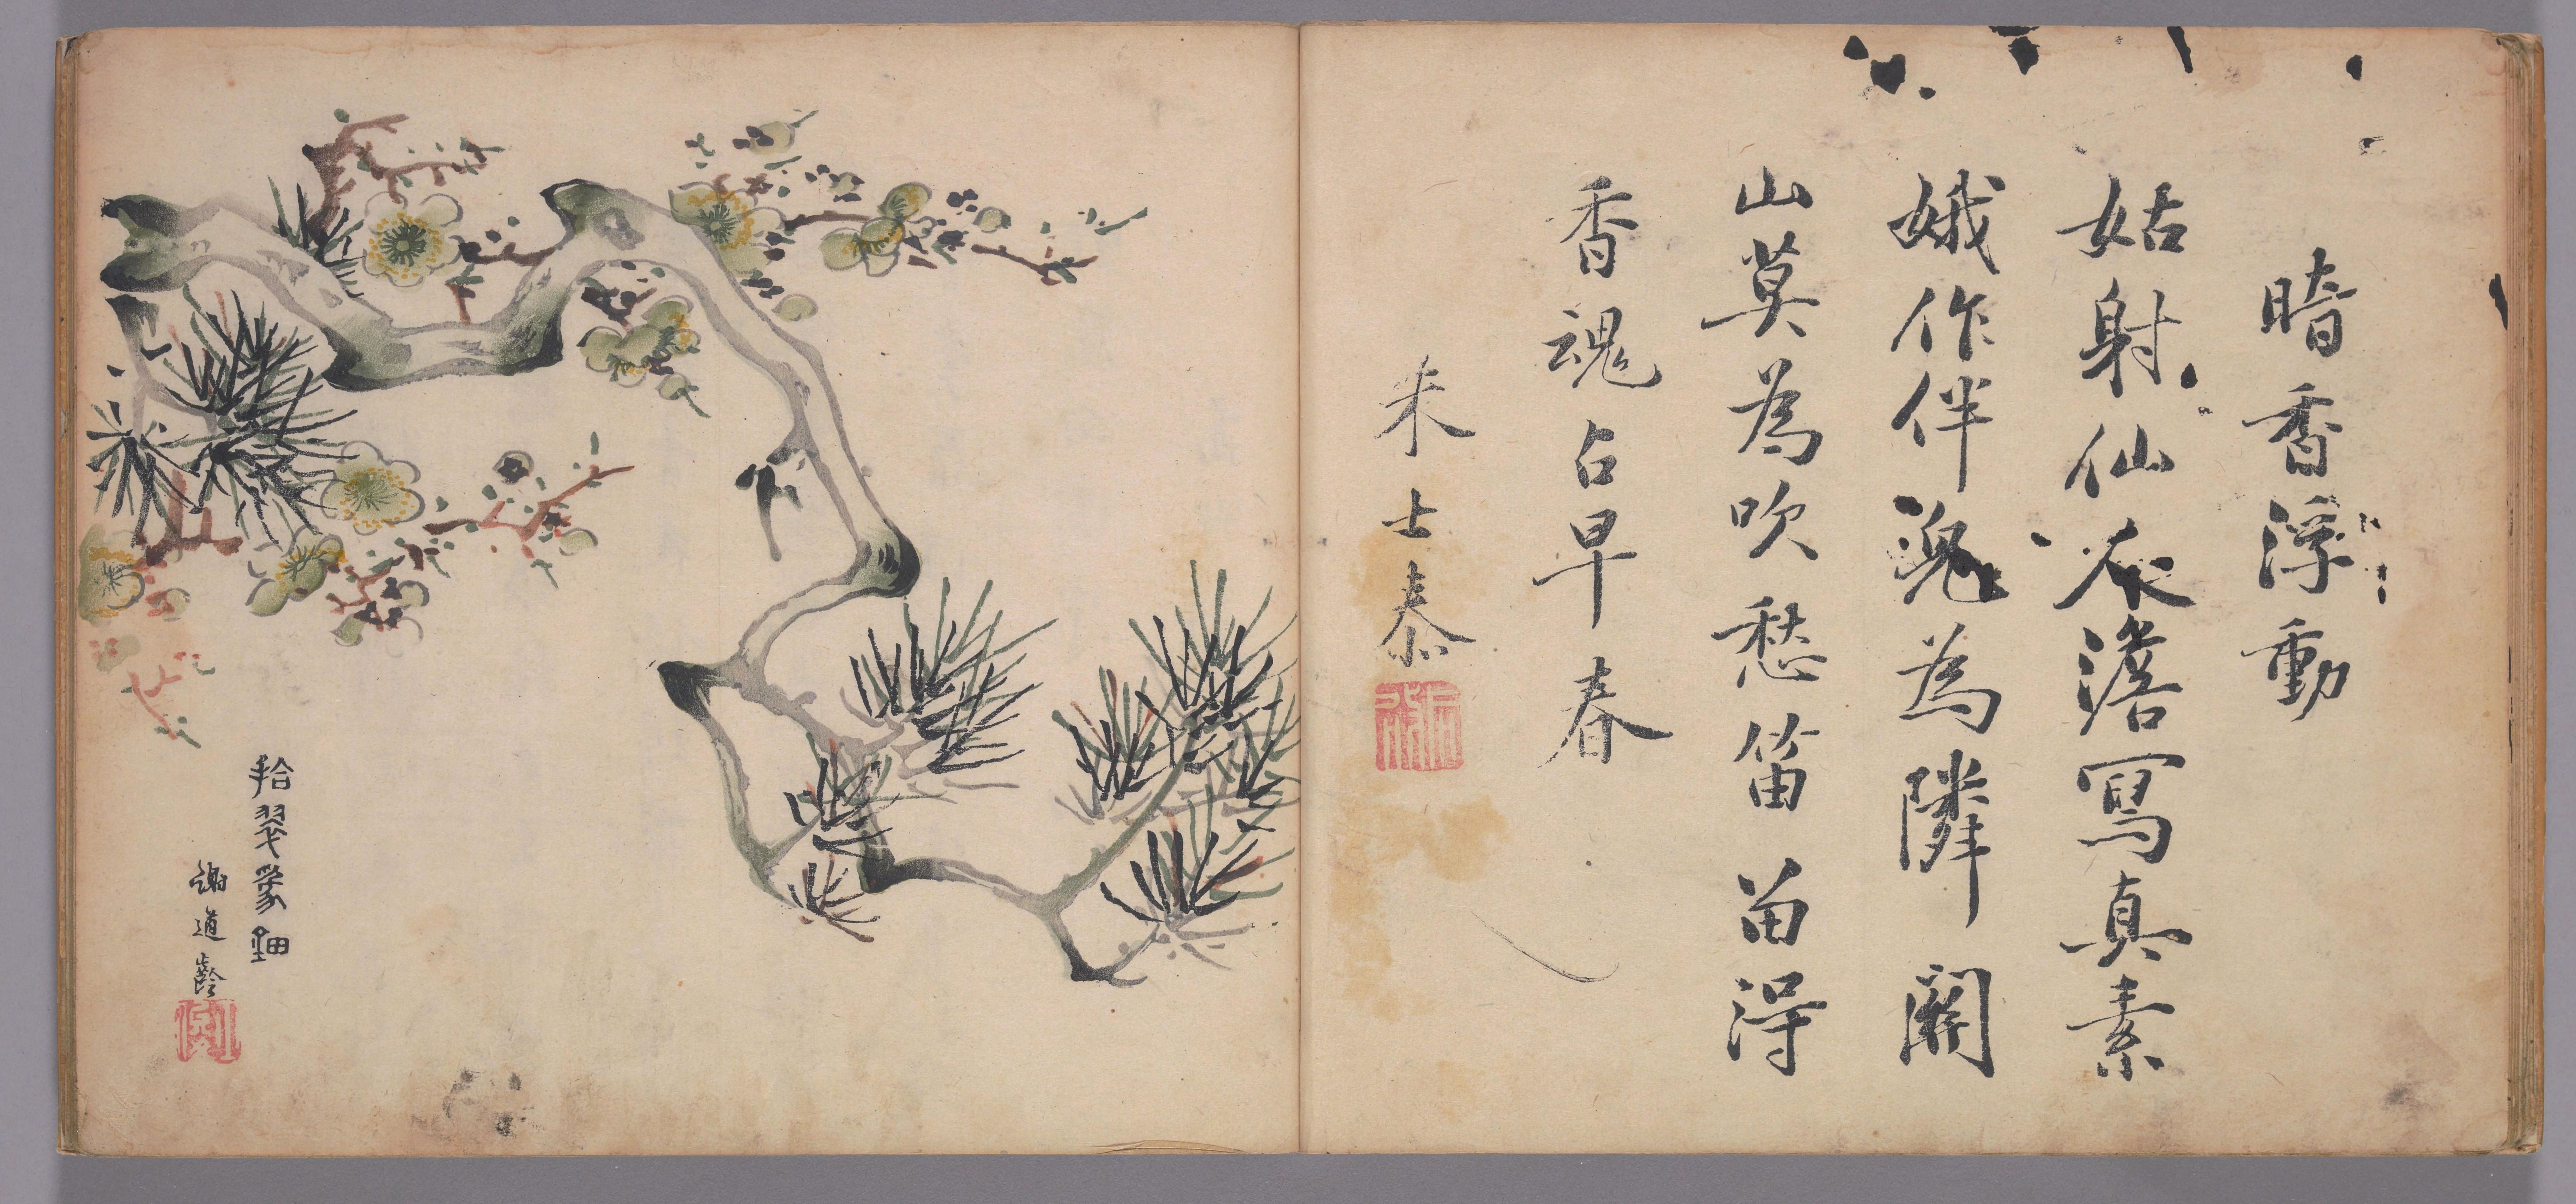 暗香浮動
姑射仙衣澹寫真素
娥作伴為隣關
山莫為吹愁笛留得
香魂占早春
朱士泰
拾翠鈿
謝道齡